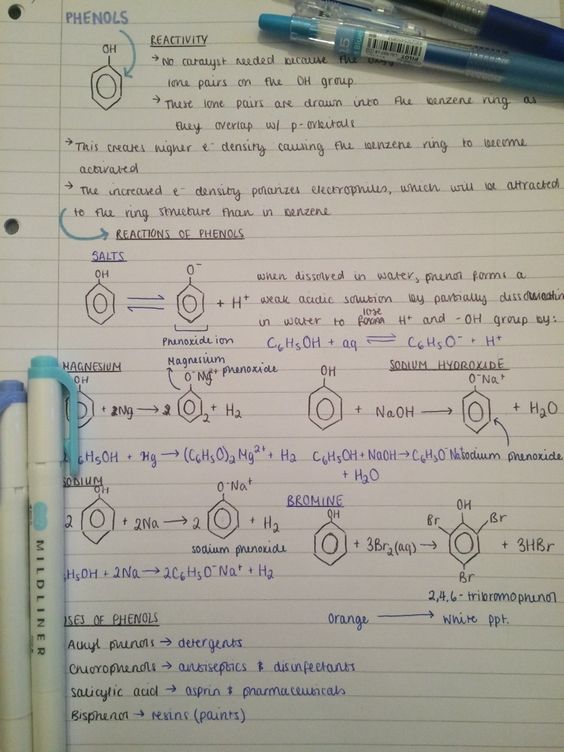 PHENOLS
REACTIVITY
OH
→ No catalyst needed because the
lone pairs on the OH group
→ These lone pairs are drawn into the benzene ring as
they overlap w/ p-orbitals
→ This creates higher e⁻ density causing the benzene ring to become
activated
→ The increased e⁻ density polarizes electrophiles, which will be attracted
to the ring structure than in benzene
REACTIONS OF PHENOLS
SALTS
OH ⇌ O⁻ + H⁺
Phenoxide ion
when dissolved in water, phenol forms a
weak acidic solution by partially
in water to lose H⁺ and -OH group by:
C₆H₅OH + aq ⇌ C₆H₅O⁻ + H⁺
MAGNESIUM
Magnesium phenoxide
OH + 2Mg → 2 O⁻Mg²⁺ 2 + H₂
H₅OH + Mg → (C₆H₅O)₂Mg²⁺ + H₂
SODIUM HYDROXIDE
OH + NaOH → O⁻Na⁺ + H₂O
C₆H₅OH + NaOH → C₆H₅O⁻Na⁺
+ H₂O
sodium phenoxide
SODIUM
2 OH + 2Na → 2 O⁻Na⁺ + H₂
sodium phenoxide
H₅OH + 2Na → 2C₆H₅O⁻Na⁺ + H₂
BROMINE
OH + 3Br₂(aq) → OH Br Br Br + 3HBr
2,4,6-tribromophenol
Orange → White ppt.
USES OF PHENOLS
Alkyl phenols → detergents
Chlorophenols → antiseptics & disinfectants
Salicylic acid → asprin & pharmaceuticals
Bisphenol → resins (paints)
MILDLINER
PILOT